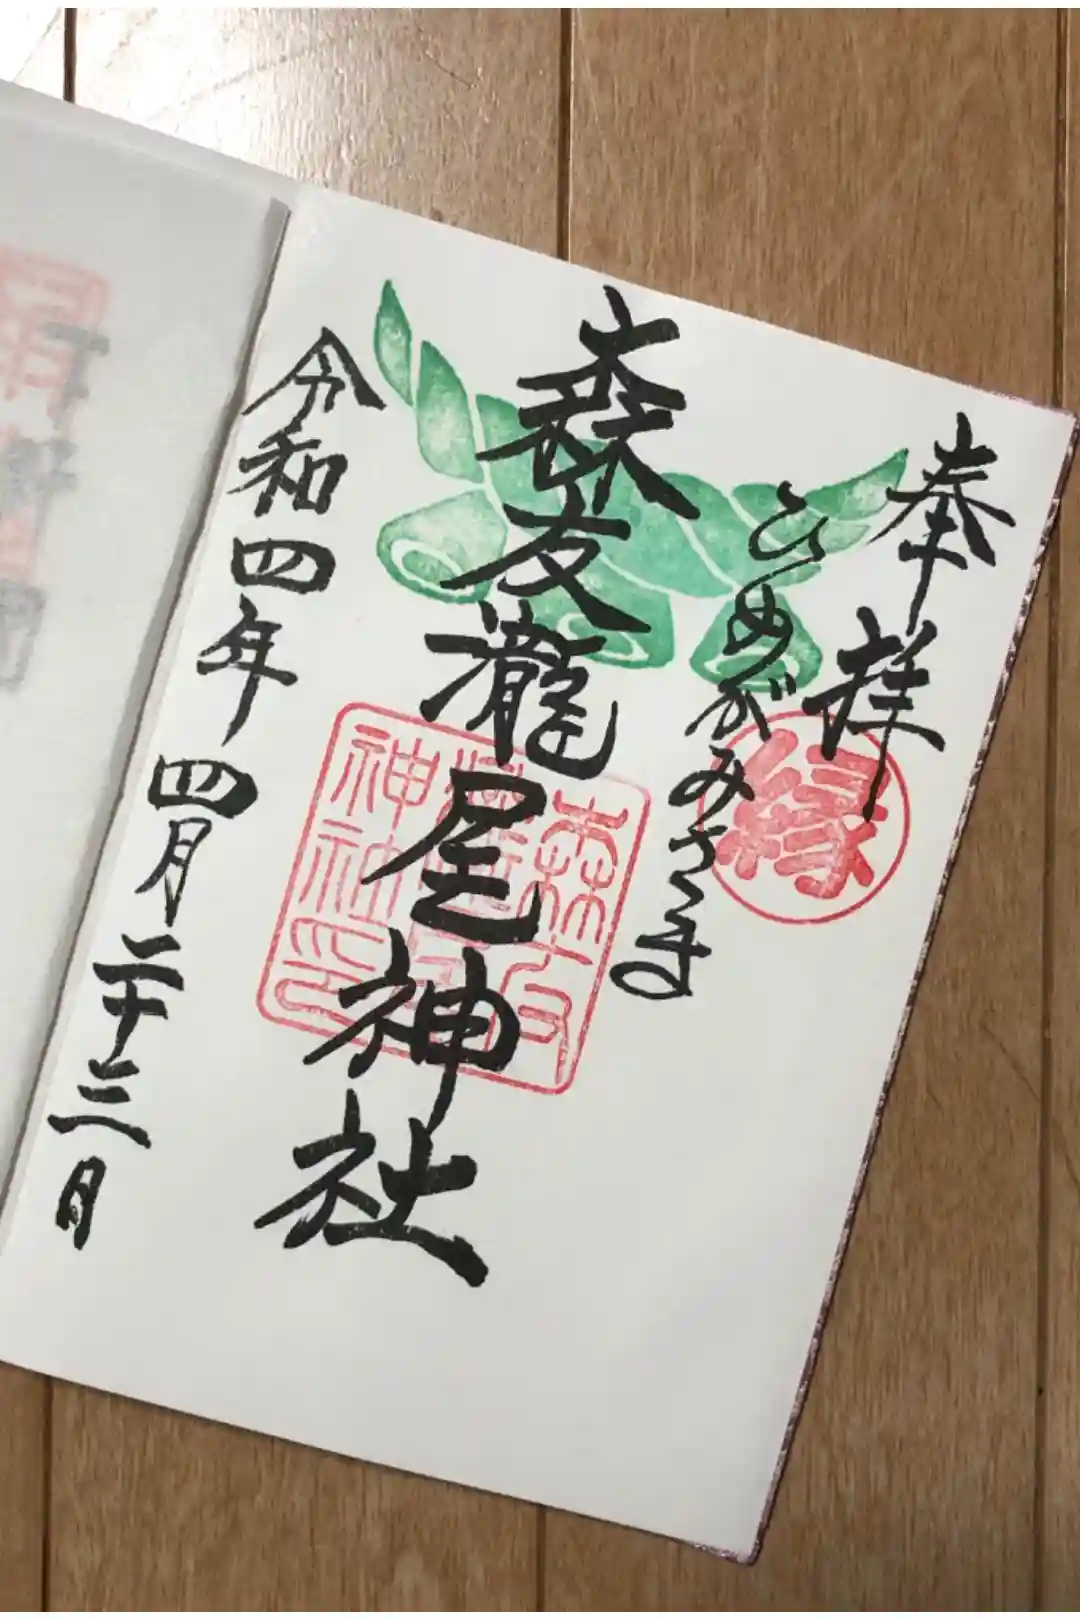 奉拝
縁
ひめがみさま
森友瀧尾神社
森友
瀧尾
神社印
令和四年四月二十三日